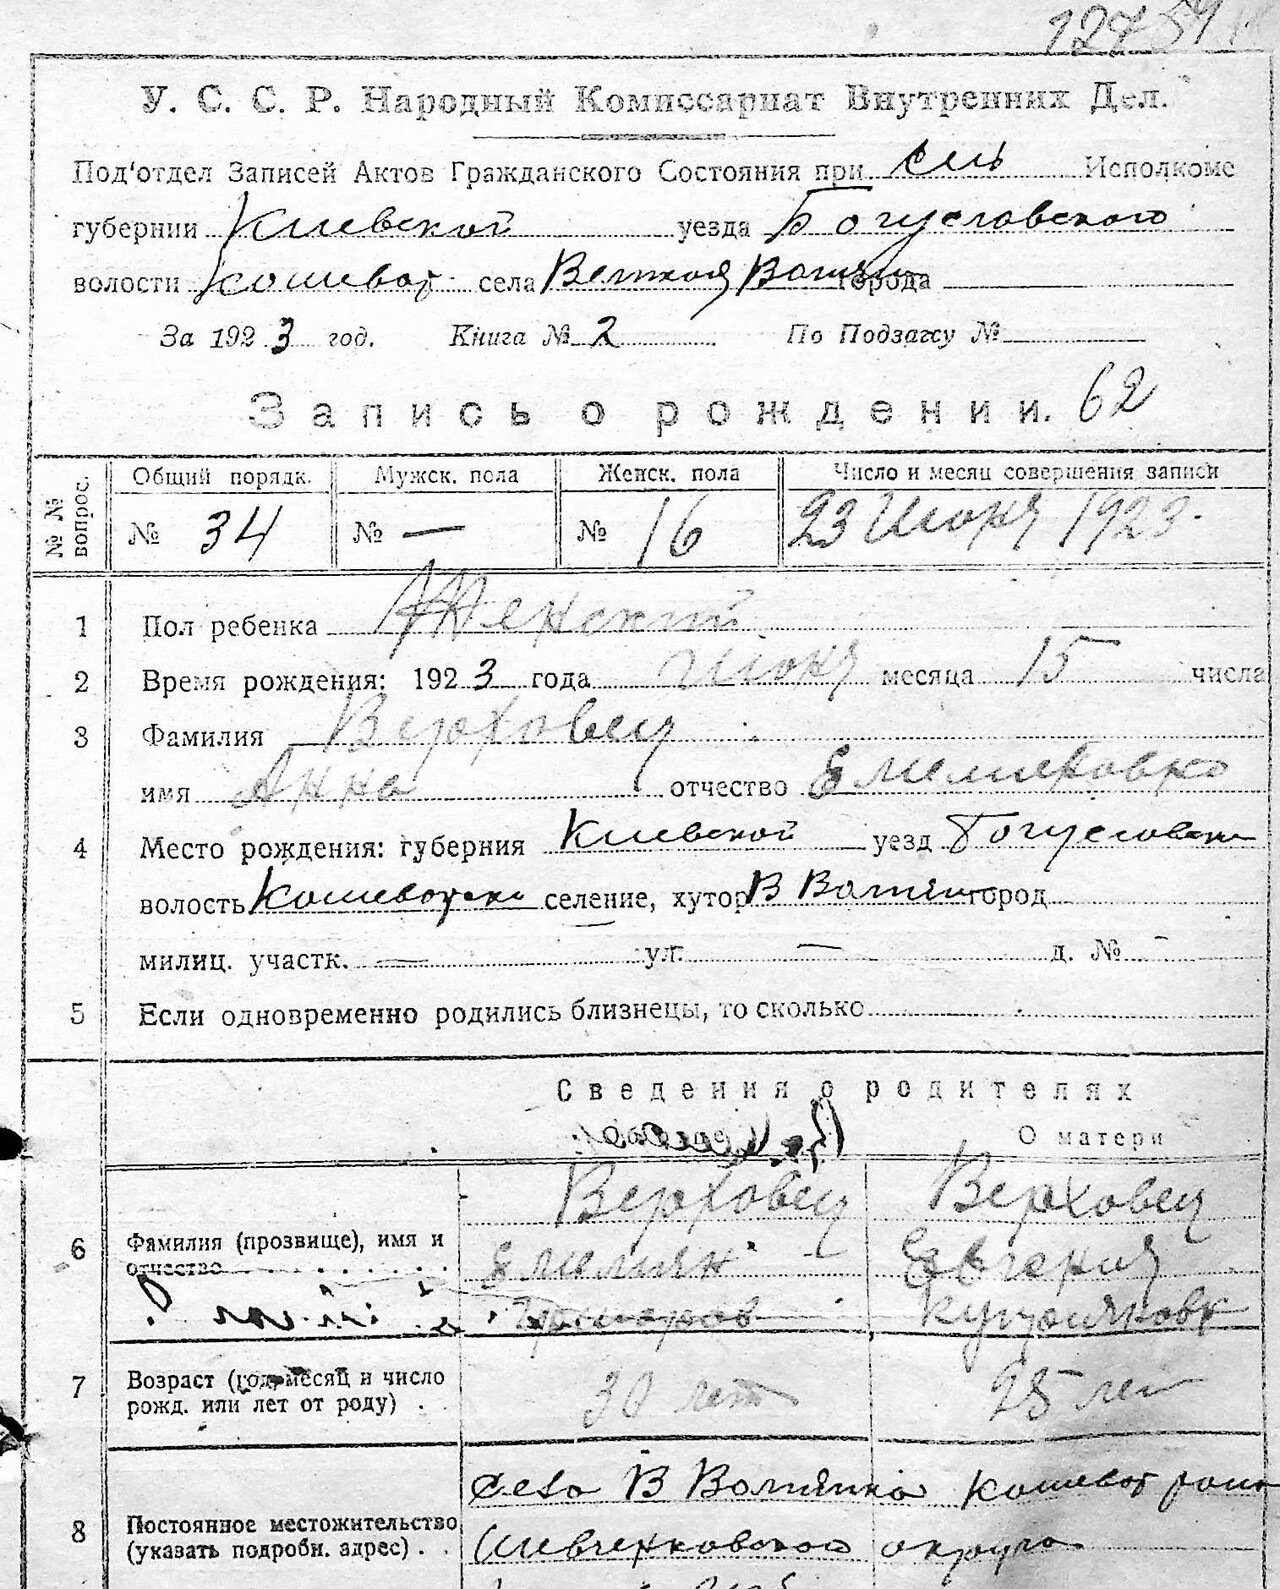 У. С. С. Р. Народный Комиссариат Внутренних Дел.
Под'отдел Записей Актов Гражданского Состояния при сель Исполкоме
губернии Киевской уезда Богуславского
волости Кошеват села города
За 1923 год. Книга № 2 По Подзагсу №
Запись о рождении. 62
№ № вопрос. Общий порядк. Мужск. пола Женск. пола Число и месяц совершения записи
№ 34 № — № 16 23 Июня 1923.
1 Пол ребенка Женский
2 Время рождения: 1923 года Июня месяца 15 числа
3 Фамилия Верховец
имя Анна отчество Емельяновна
4 Место рождения: губерния Киевской уезд Богуславск
волость селение, хутор В город
милиц. участк. — ул. — д. № -
5 Если одновременно родились близнецы, то сколько
Сведения о родителях
О матери
Верховец Верховец
6 Фамилия (прозвище), имя и отчество Емельян Евгения
7 Возраст (год, месяц и число рожд. или лет от роду) . 30 лет 25 лет
село В Кошеват
8 Постоянное местожительство (указать подробн. адрес) . . Шевченковского округа